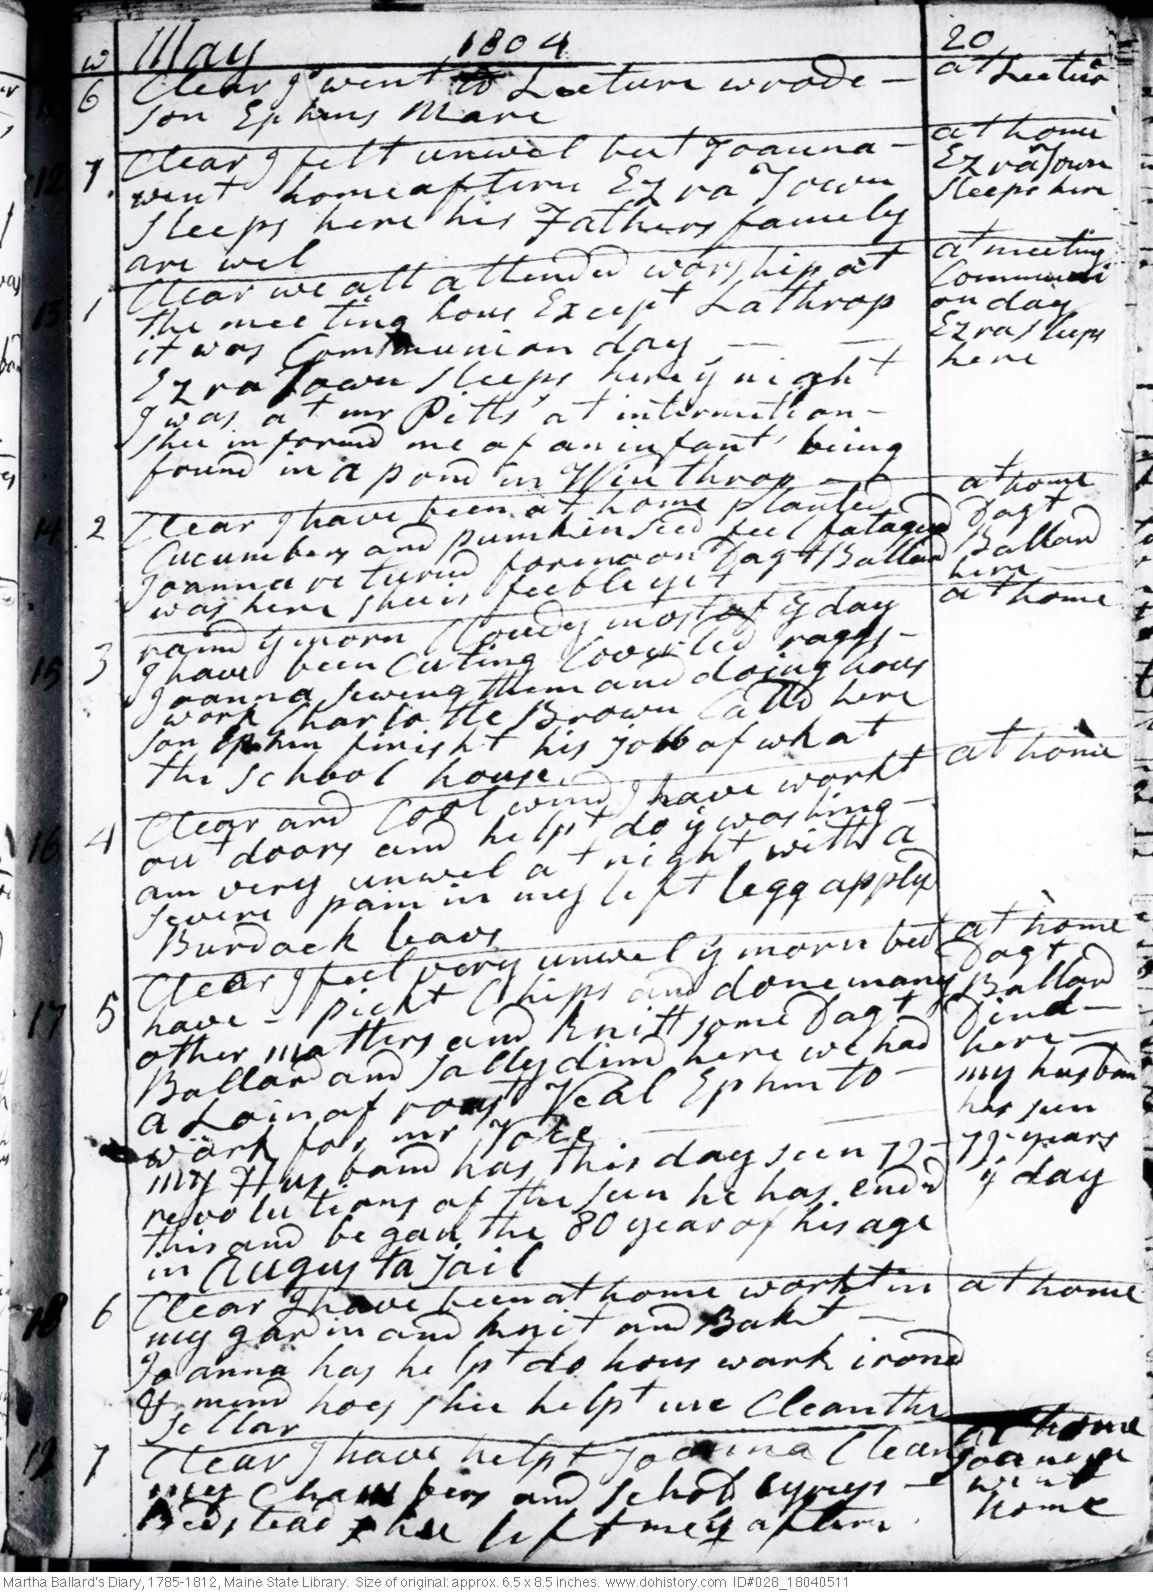 w May 1804 20
6 Clear I went to Lecture wrode - at Lectur
son Ephms Mare
12 7 Clear I felt unwel but Joanna - at home
went home aftern Ezra Town Ezra Town
sleeps here his Fathers famely sleeps here
are wel
13 1 Clear we all attended worship at at meeting
the meeting hous Except Lathrop Communi
it was Communion day on day
Ezra Town sleeps here ÿ night Ezra sleeps
I was at mr Pitts' at intermition - here
shee informd me of an infant being
found in a pond in Winthrop
14 2 Clear I have been at home planted at home
Cucumbers and pumkin seed feel fatagud Dagt
Joanna returnd forenoon Dagt Ballard Ballard
was here shee is feeble yet here
15 3 raind ÿ morn Cloudy most of ÿ day at home
I have been Cuting Coverled raggs -
Joanna sewing them and doing hous
work Charlotte Brown Calld here
son Ephm finisht his jobb of what
the school house
16 4 Clear and Cool wind I have workt at home
out doors and helpt do ÿ washing -
am very unwel at night with a
severe pain in my left legg applyd
Burdock leavs
17 5 Clear I feel very unwel ÿ morn but at home
have - pickt Chips and done many Dagt
other matters and knitt some Dagt Ballard
Ballard and Sally dind here we had Dind -
a Loin of roast Veal Ephm to - here -
work for mr Voke my husban
my Husband has this day seen 79 has seen
revolutions of the sun he has endd 79 years
this and began the 80 year of his age ÿ day
in Augusta Jail
18 6 Clear I have been at home workt in at home
my gardin and knit and Bakt -
Joanna has helpt do hous work irond
& mend hoes shee helpt me Clean the
sellar
19 7 Clear I have helpt Joanna Clean at home
my Chambers and
Bedstead shee left me ÿ aftern went
home
Martha Ballard's Diary, 1785-1812, Maine State Library. Size of original: approx. 6.5 x 8.5 inches. www.dohistory.com ID#028_18040511